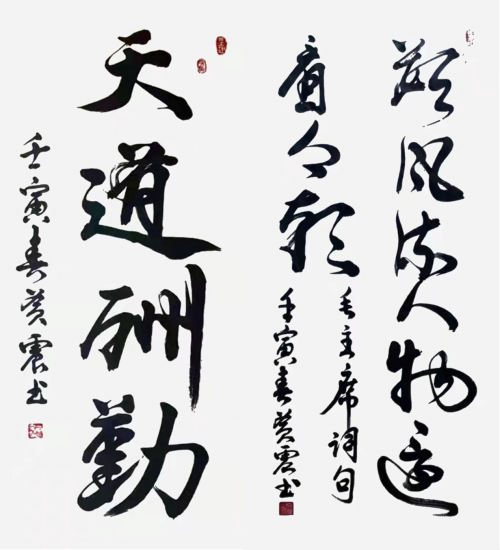 數风流人物还
看今朝
毛主席词句
壬寅春黄震书
天道酬勤
壬寅春黄震书